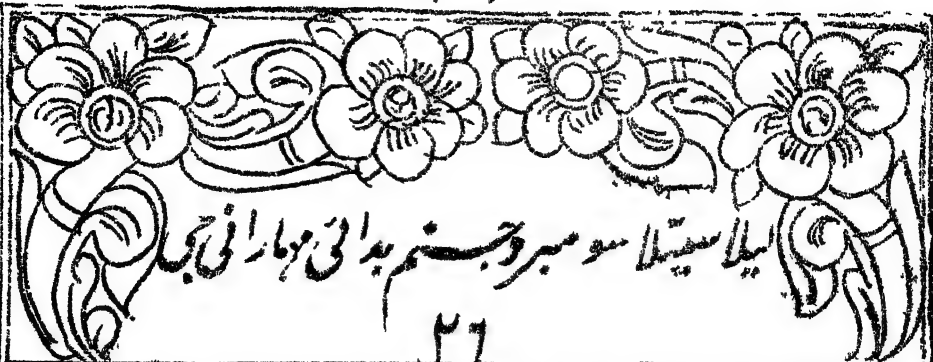 لیلا سیتلا سو مبر و جسنم بدائی مہارانی جی
۲٦